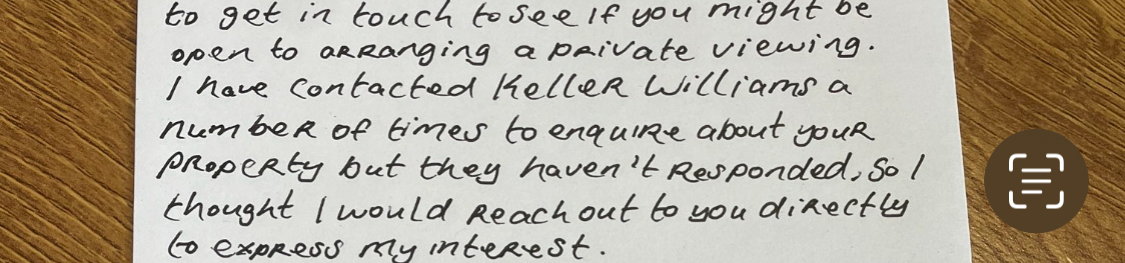 to get in touch to see if you might be
open to arranging a private viewing.
I have contacted Keller Williams a
number of times to enquire about your
property but they haven't responded, so I
thought I would reach out to you directly
to express my interest.